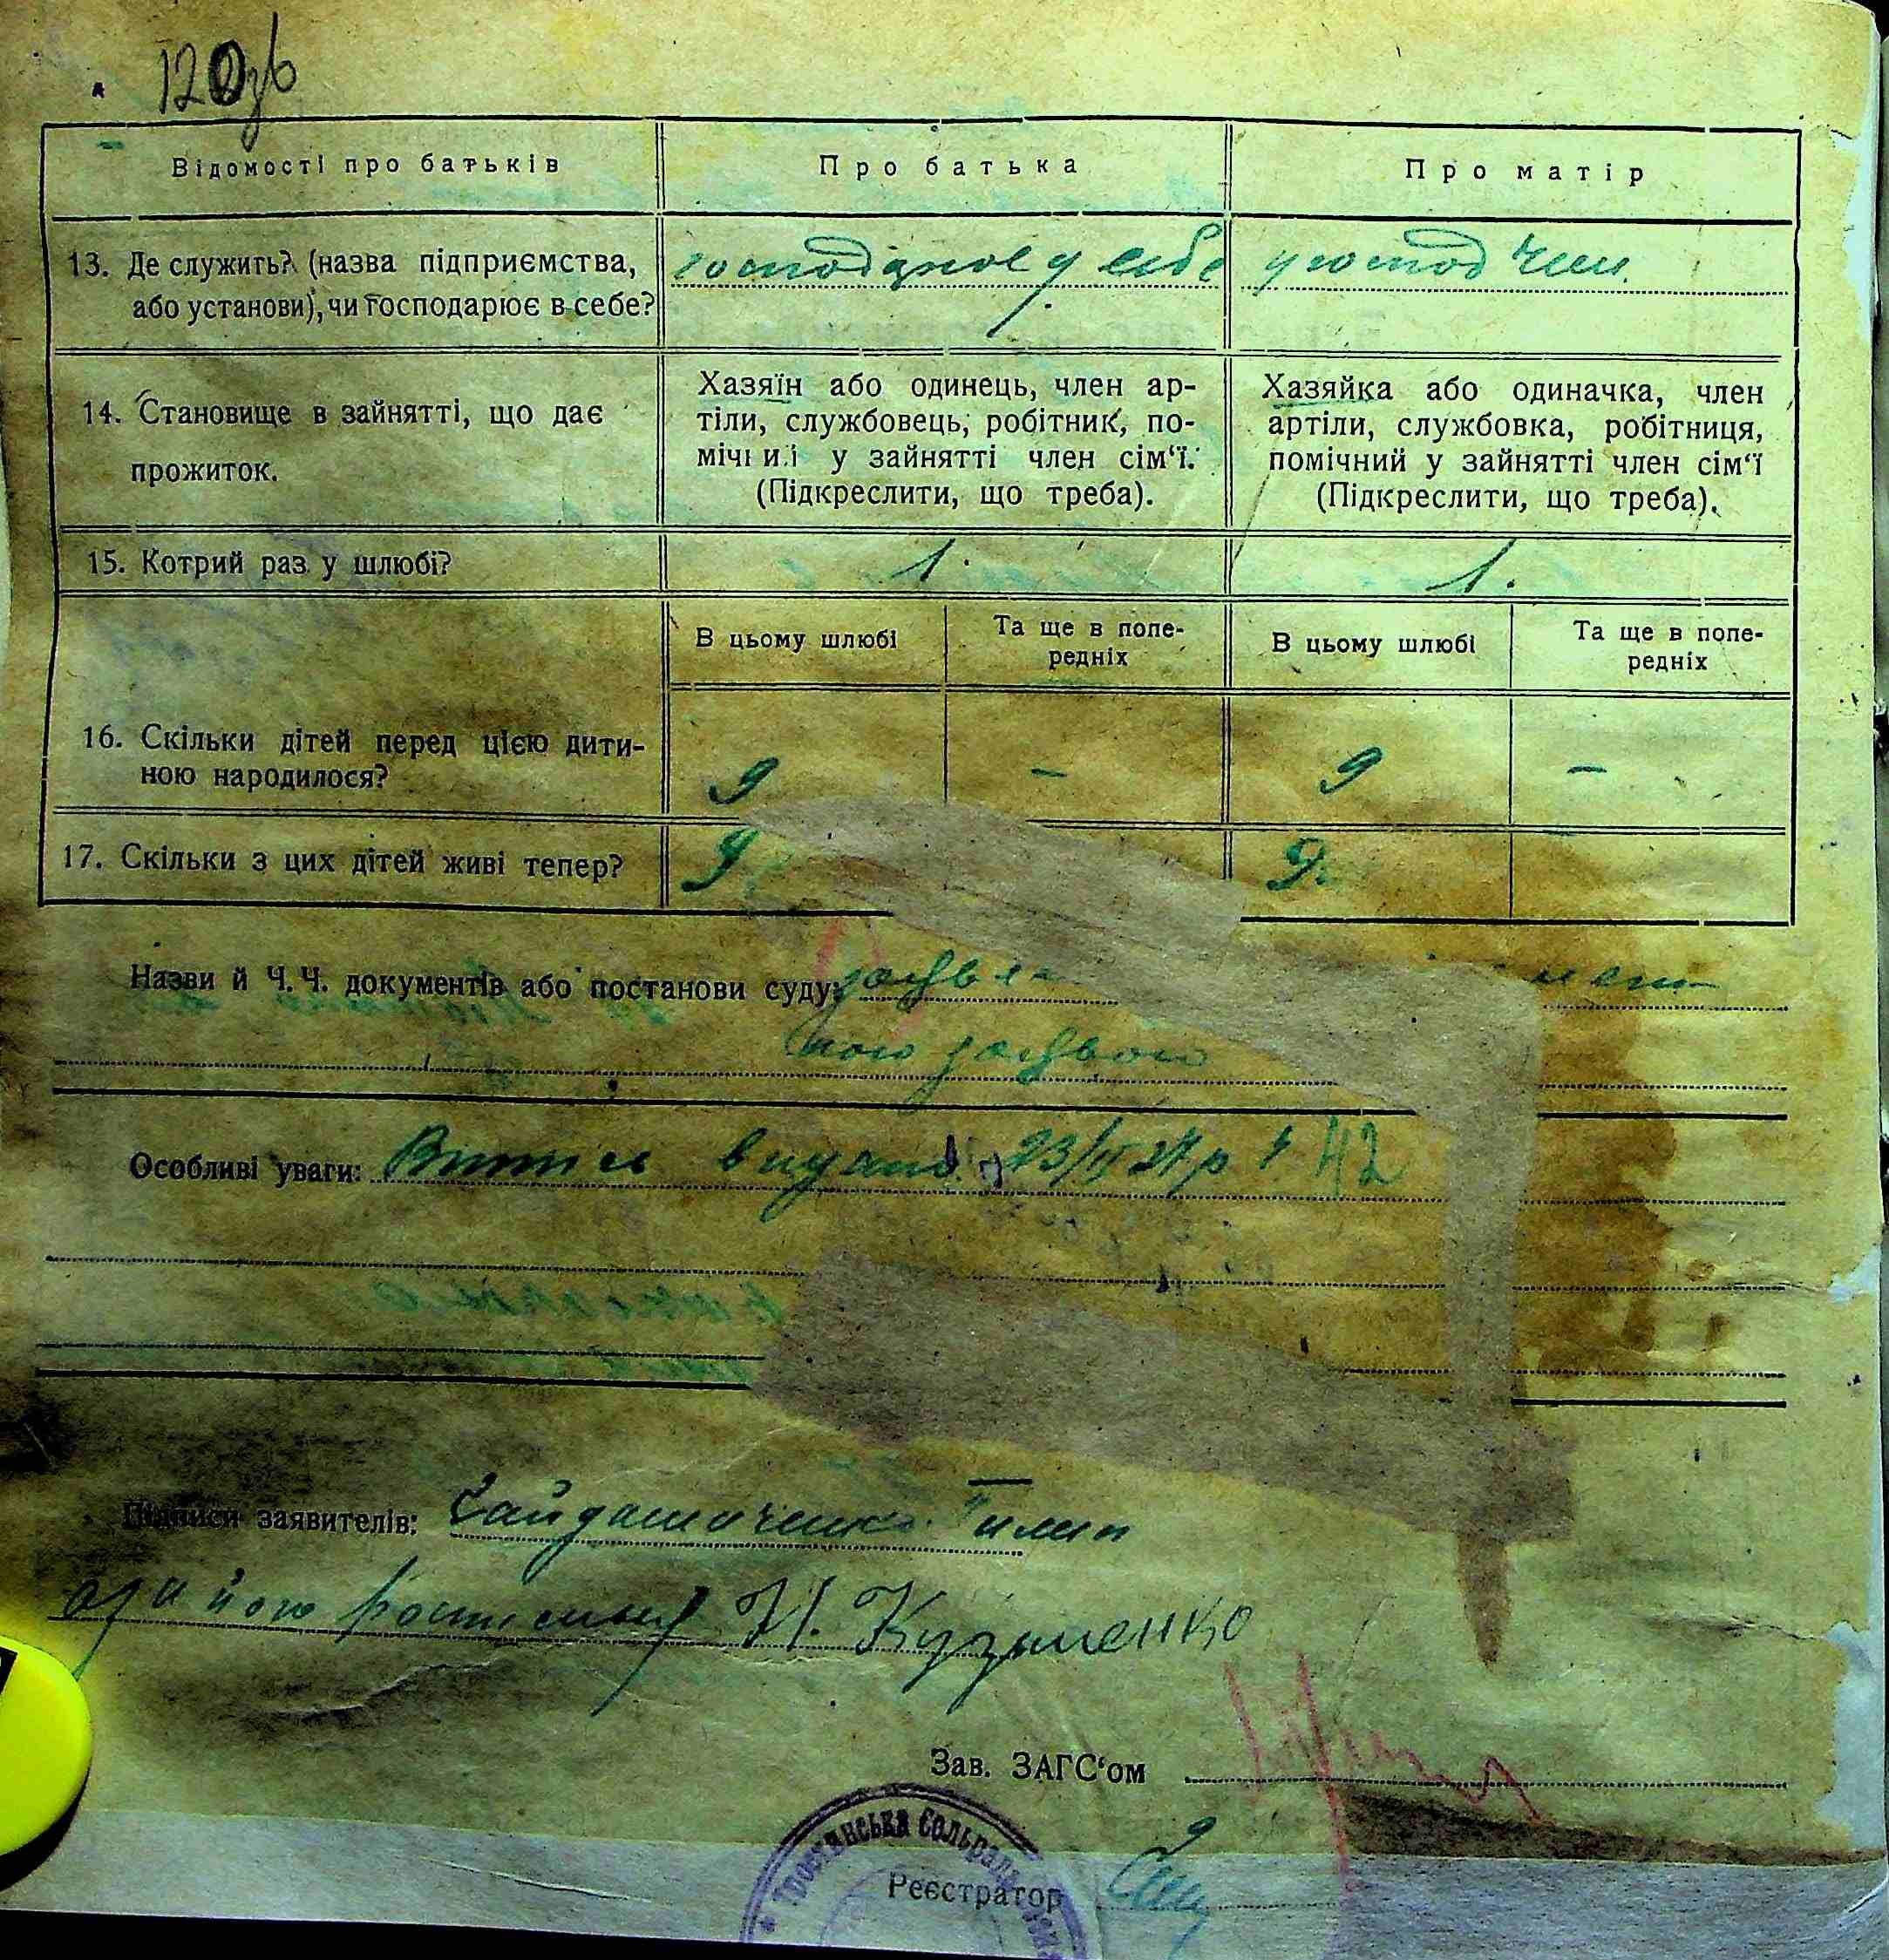 120зв
Відомості про батьків
Про батька
Про матір
13. Де служить? (назва підприємства,
або установи), чи господарює в себе?
у себе
14. Становище в зайнятті, що дає
прожиток.
Хазяїн або одинець, член ар-
тіли, службовець, робітник, по-
мічний у зайнятті член сім‘ї.
(Підкреслити, що треба).
Хазяйка або одиначка, член
артіли, службовка, робітниця,
помічний у зайнятті член сім‘ї
(Підкреслити, що треба).
15. Котрий раз у шлюбі?
1.
1.
В цьому шлюбі
Та ще в попе-
редніх
В цьому шлюбі
Та ще в попе-
редніх
16. Скільки дітей перед цією дити-
ною народилося?
9
-
9
-
17. Скільки з цих дітей живі тепер?
9.
9.
Назви й Ч.Ч. документів або постанови суду:
Особливі уваги: Випис видано 23/
42
Підписи заявителів:
Н. Кузьменко
Зав. ЗАГС‘ом
Реєстратор